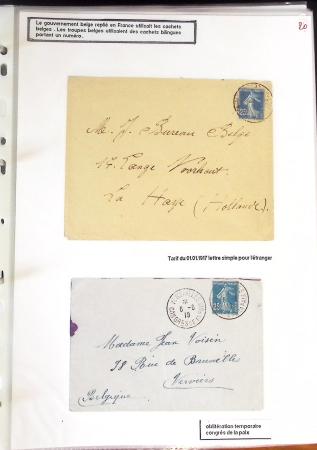 Le gouvernement belge replié en France utilisait les cachets
belges. Les troupes belges utilisaient des cachets bilingues
portant un numéro.
20
Me. J. Bureau Belge
17. Lange Voorhout.
La Haye (Hollande)
Tarif du 01.01.1917 lettre simple pour l'étranger
CONGRES DE LA
6-6
19
25
Madame Jean Voisin
38 Rue de Bruxelles
Verviers
Belgique
oblitération temporaire
congrès de la paix